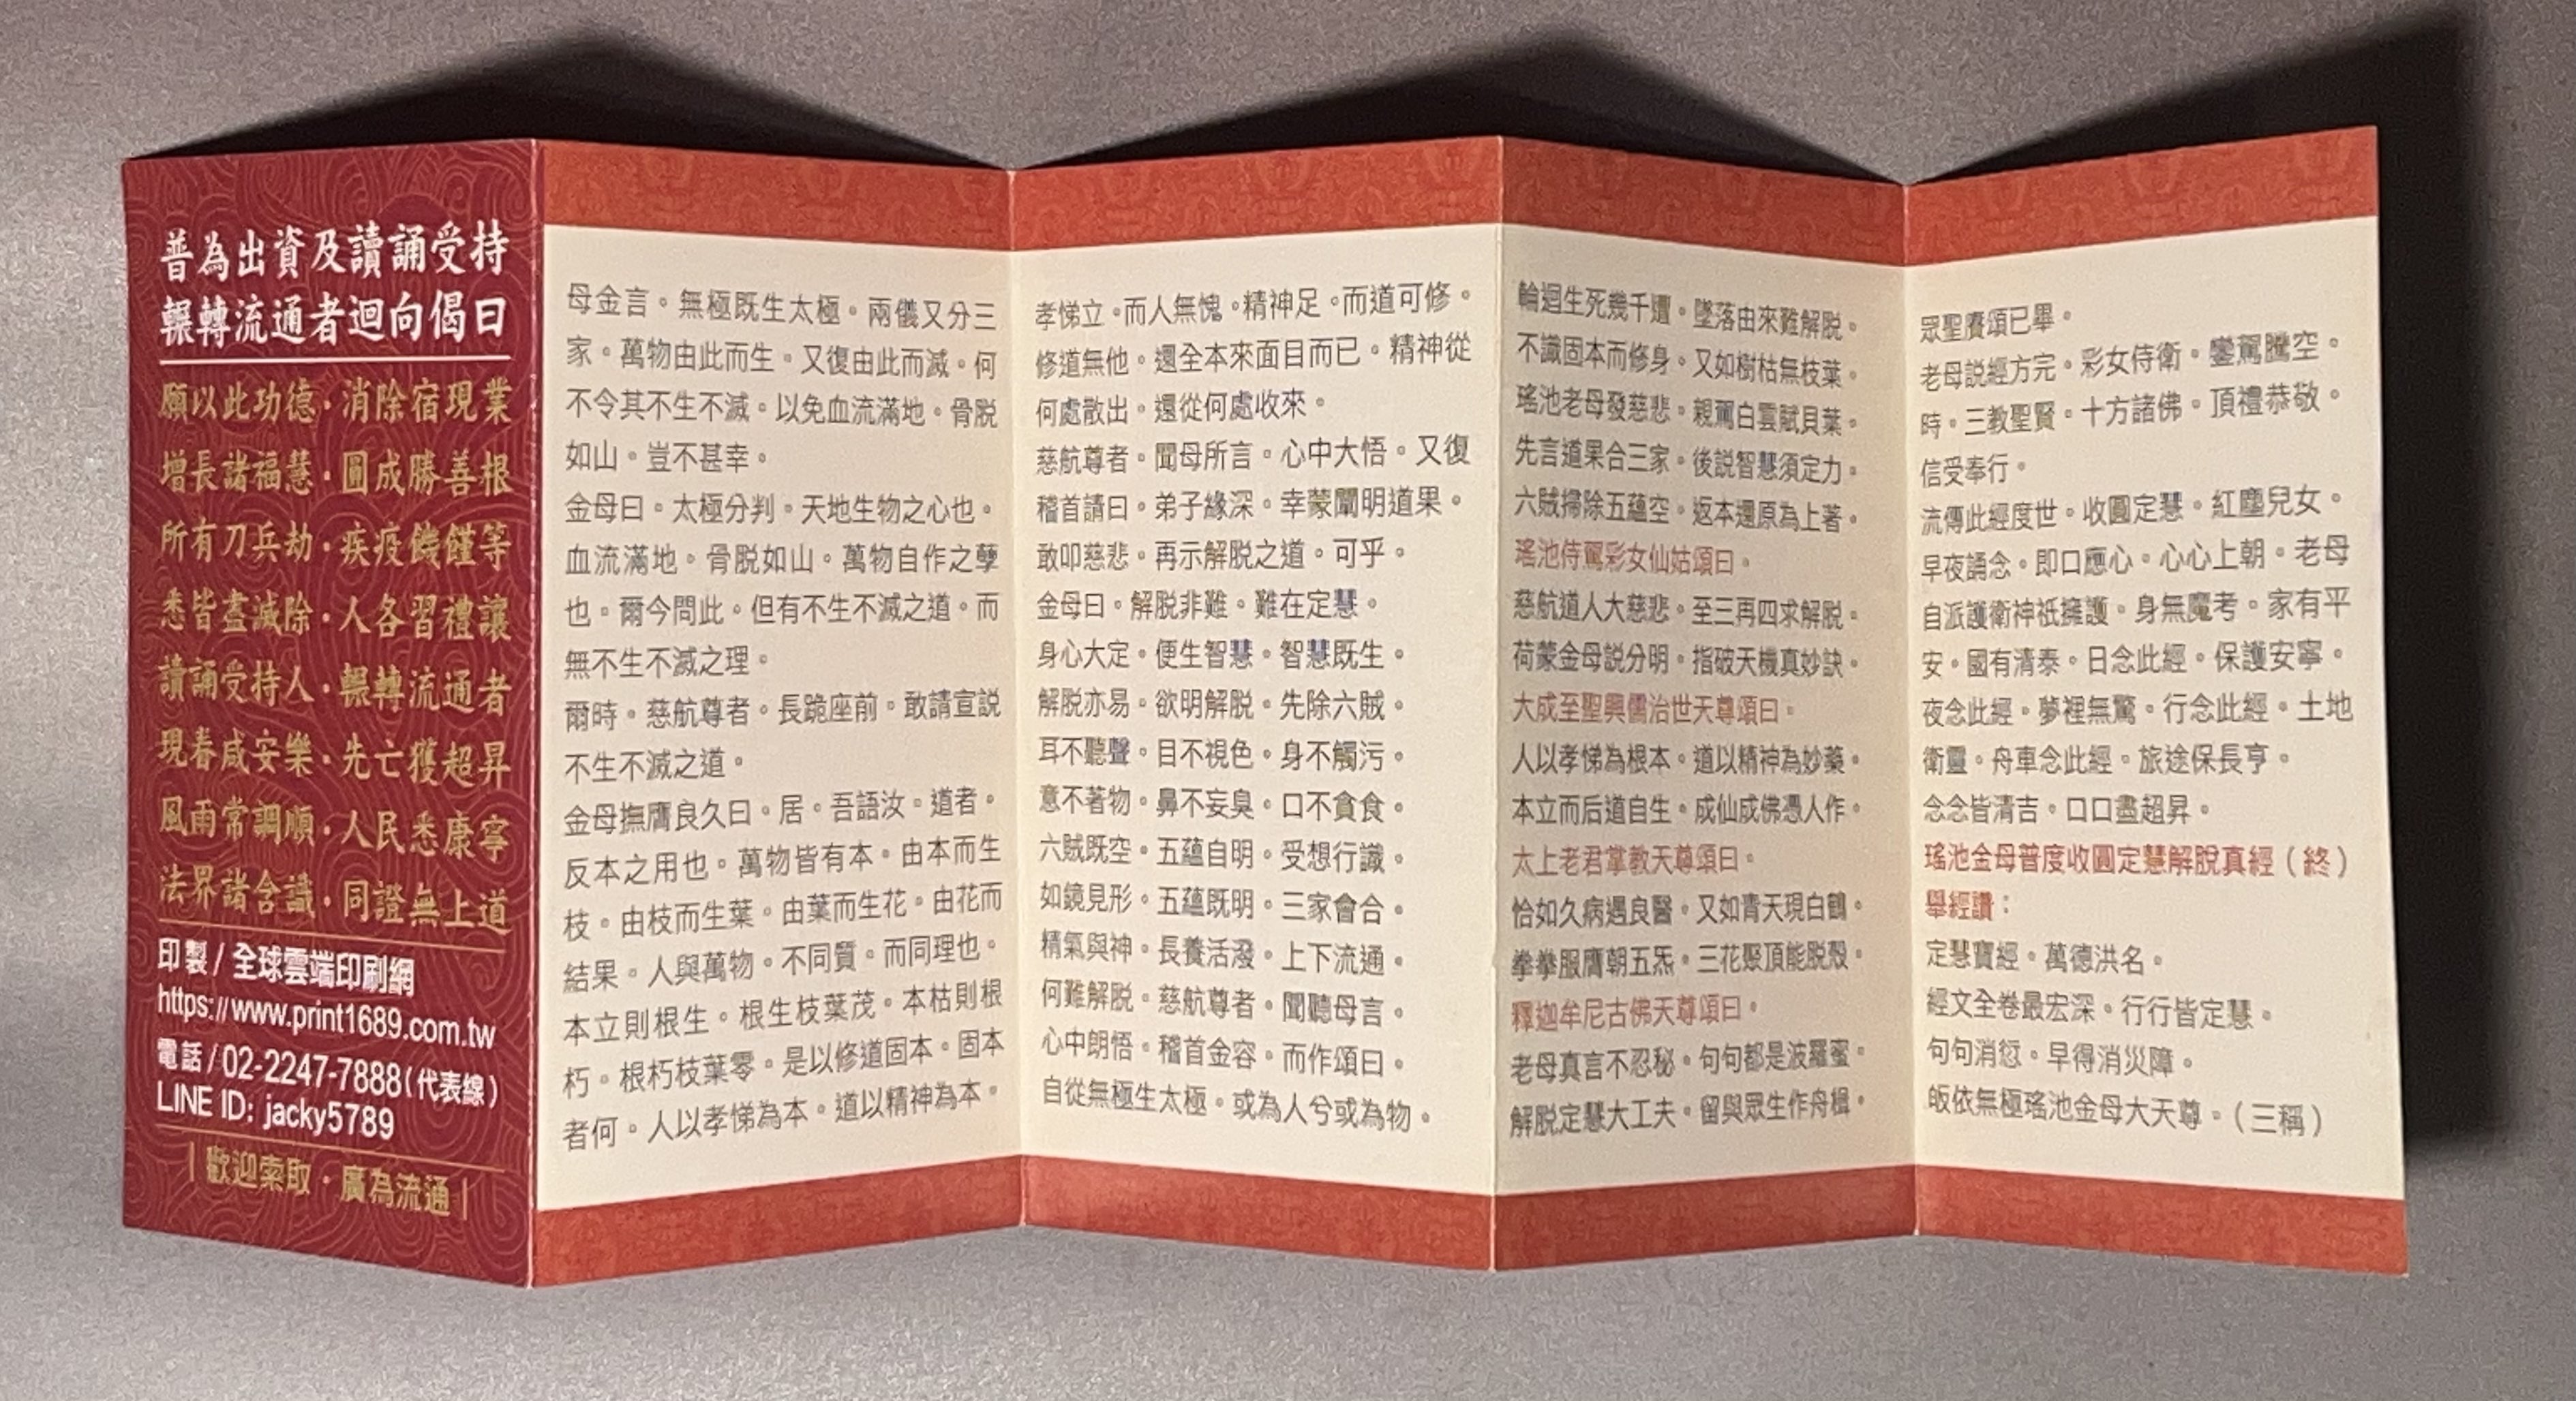 普為出資及讀誦受持
輾轉流通者迴向偈曰
願以此功德·消除宿現業
增長諸福慧·圓成勝善根
所有刀兵劫·疾疫饑饉等
悉皆盡滅除·人各習禮讓
讀誦受持人·輾轉流通者
現眷咸安樂·先亡獲超昇
風雨常調順·人民悉康寧
法界諸含識·同證無上道
印製/全球雲端印刷網
https://www.print1689.com.tw
電話/02-2247-7888(代表線)
LINE ID: jacky5789
|歡迎索取·廣為流通|
母金言。無極既生太極。兩儀又分三
家。萬物由此而生。又復由此而滅。何
不令其不生不滅。以免血流滿地。骨脱
如山。豈不甚幸。
金母曰。太極分判。天地生物之心也。
血流滿地。骨脱如山。萬物自作之孽
也。爾今問此。但有不生不滅之道。而
無不生不滅之理。
爾時。慈航尊者。長跪座前。敢請宣説
不生不滅之道。
金母撫膺良久曰。居。吾語汝。道者。
反本之用也。萬物皆有本。由本而生
枝。由枝而生葉。由葉而生花。由花而
結果。人與萬物。不同質。而同理也。
本立則根生。根生枝葉茂。本枯則根
朽。根朽枝葉零。是以修道固本。固本
者何。人以孝悌為本。道以精神為本。
孝悌立。而人無愧。精神足。而道可修。
修道無他。還全本來面目而已。精神從
何處散出。還從何處收來。
慈航尊者。聞母所言。心中大悟。又復
稽首請曰。弟子緣深。幸蒙闡明道果。
敢叩慈悲。再示解脱之道。可乎。
金母曰。解脱非難。難在定慧。
身心大定。便生智慧。智慧既生。
解脱亦易。欲明解脱。先除六賊。
耳不聽聲。目不視色。身不觸污。
意不著物。鼻不妄臭。口不貪食。
六賊既空。五蘊自明。受想行識。
如鏡見形。五蘊既明。三家會合。
精氣與神。長養活潑。上下流通。
何難解脱。慈航尊者。聞聽母言。
心中朗悟。稽首金容。而作頌曰。
自從無極生太極。或為人兮或為物。
輪迴生死幾千遭。墜落由來難解脱。
不識固本而修身。又如樹枯無枝葉。
瑤池老母發慈悲。親駕白雲賦貝葉。
先言道果合三家。後説智慧須定力。
六賊掃除五蘊空。返本還原為上著。
瑤池侍駕彩女仙姑頌曰。
慈航道人大慈悲。至三再四求解脱。
荷蒙金母説分明。指破天機真妙訣。
大成至聖興儒治世天尊頌曰。
人以孝悌為根本。道以精神為妙藥。
本立而后道自生。成仙成佛憑人作。
太上老君掌教天尊頌曰。
恰如久病遇良醫。又如青天現白鶴。
拳拳服膺朝五炁。三花聚頂能脱殼。
釋迦牟尼古佛天尊頌曰。
老母真言不忍秘。句句都是波羅蜜。
解脱定慧大工夫。留與眾生作舟楫。
眾聖賡頌已畢。
老母説經方完。彩女侍衛。鑾駕騰空。
時。三教聖賢。十方諸佛。頂禮恭敬。
信受奉行。
流傳此經度世。收圓定慧。紅塵兒女。
早夜誦念。即口應心。心心上朝。老母
自派護衛神祇擁護。身無魔考。家有平
安。國有清泰。日念此經。保護安寧。
夜念此經。夢裡無驚。行念此經。土地
衛靈。舟車念此經。旅途保長亨。
念念皆清吉。口口盡超昇。
瑤池金母普度收圓定慧解脱真經（終）
舉經讚：
定慧寶經。萬德洪名。
經文全卷最宏深。行行皆定慧。
句句消愆。早得消災障。
皈依無極瑤池金母大天尊。（三稱）